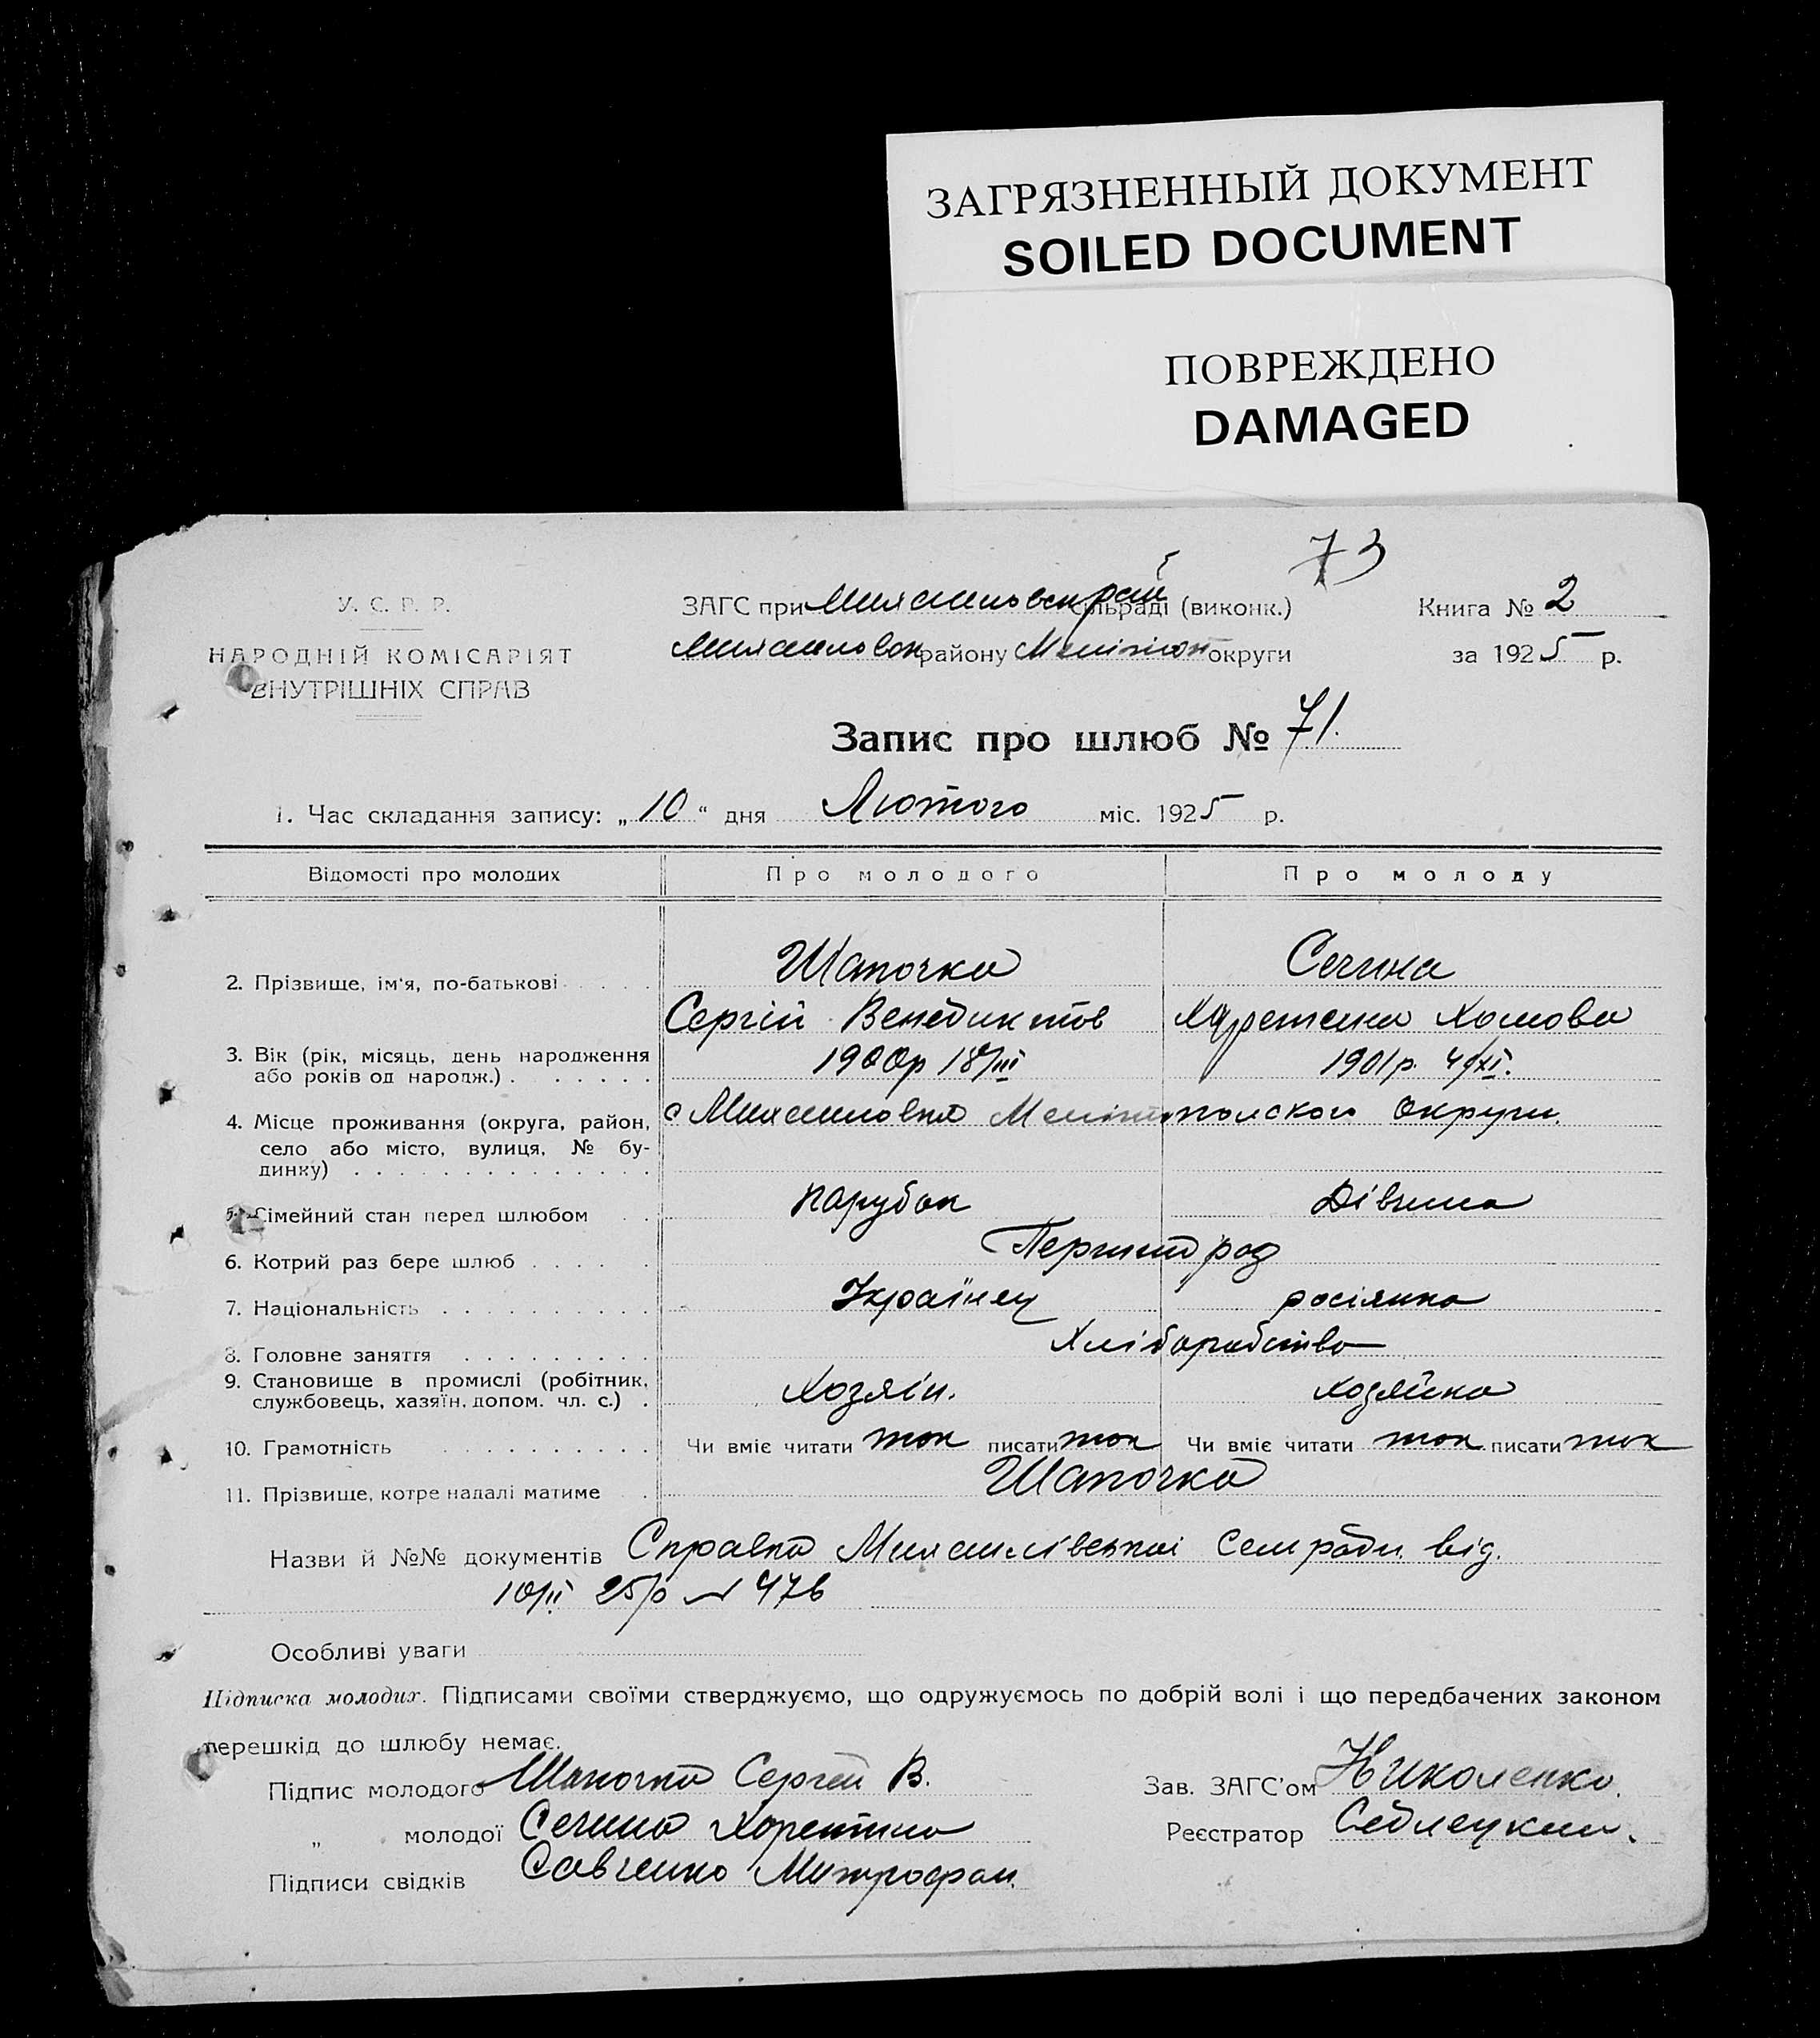 ЗАГРЯЗНЕННЫЙ ДОКУМЕНТ
SOILED DOCUMENT
ПОВРЕЖДЕНО
DAMAGED
73
У. С. Р. Р.
НАРОДНІЙ КОМІСАРІЯТ
ВНУТРІШНІХ СПРАВ
ЗАГС при сільраді (виконк.)
району Меліттоп округи
Книга № 2
за 1925 р.
Запис про шлюб № 71.
1. Час складання запису: „10“ дня Лютого міс. 1925 р.
Відомості про молодих Про молодого Про молоду
2. Прізвище, ім'я, по-батькові Шапочка Сечина
Сергій Венедиктов Харетина Хомова
3. Вік (рік, місяць, день народження 1900р 18/III 1901р.
або років од народж.)
4. Місце проживання (округа, район, с Михайловка Мелітопольского Округи.
село або місто, вулиця, № бу-
динку)
5. Сімейний стан перед шлюбом парубок Дівчина
6. Котрий раз бере шлюб Перший раз
7. Національність Українец росіянка
8. Головне заняття Хліборобство
9. Становище в промислі (робітник, Хозяін. хозяйка
службовець, хазяїн, допом. чл. с.)
10. Грамотність Чи вміє читати так писати так Чи вміє читати так писати так
11. Прізвище, котре надалі матиме Шапочка
Назви й №№ документів Справка Михайлівської Селради від.
10/II 25р № 476
Особливі уваги
Підписка молодих. Підписами своїми стверджуємо, що одружуємось по добрій волі і що передбачених законом
перешкід до шлюбу немає.
Підпис молодого Шапочка Сергей В.
„ молодої Сечина Харетина
Підписи свідків Савченко Митрофан.
Зав. ЗАГС'ом Николенко.
Реєстратор Седлецкий.